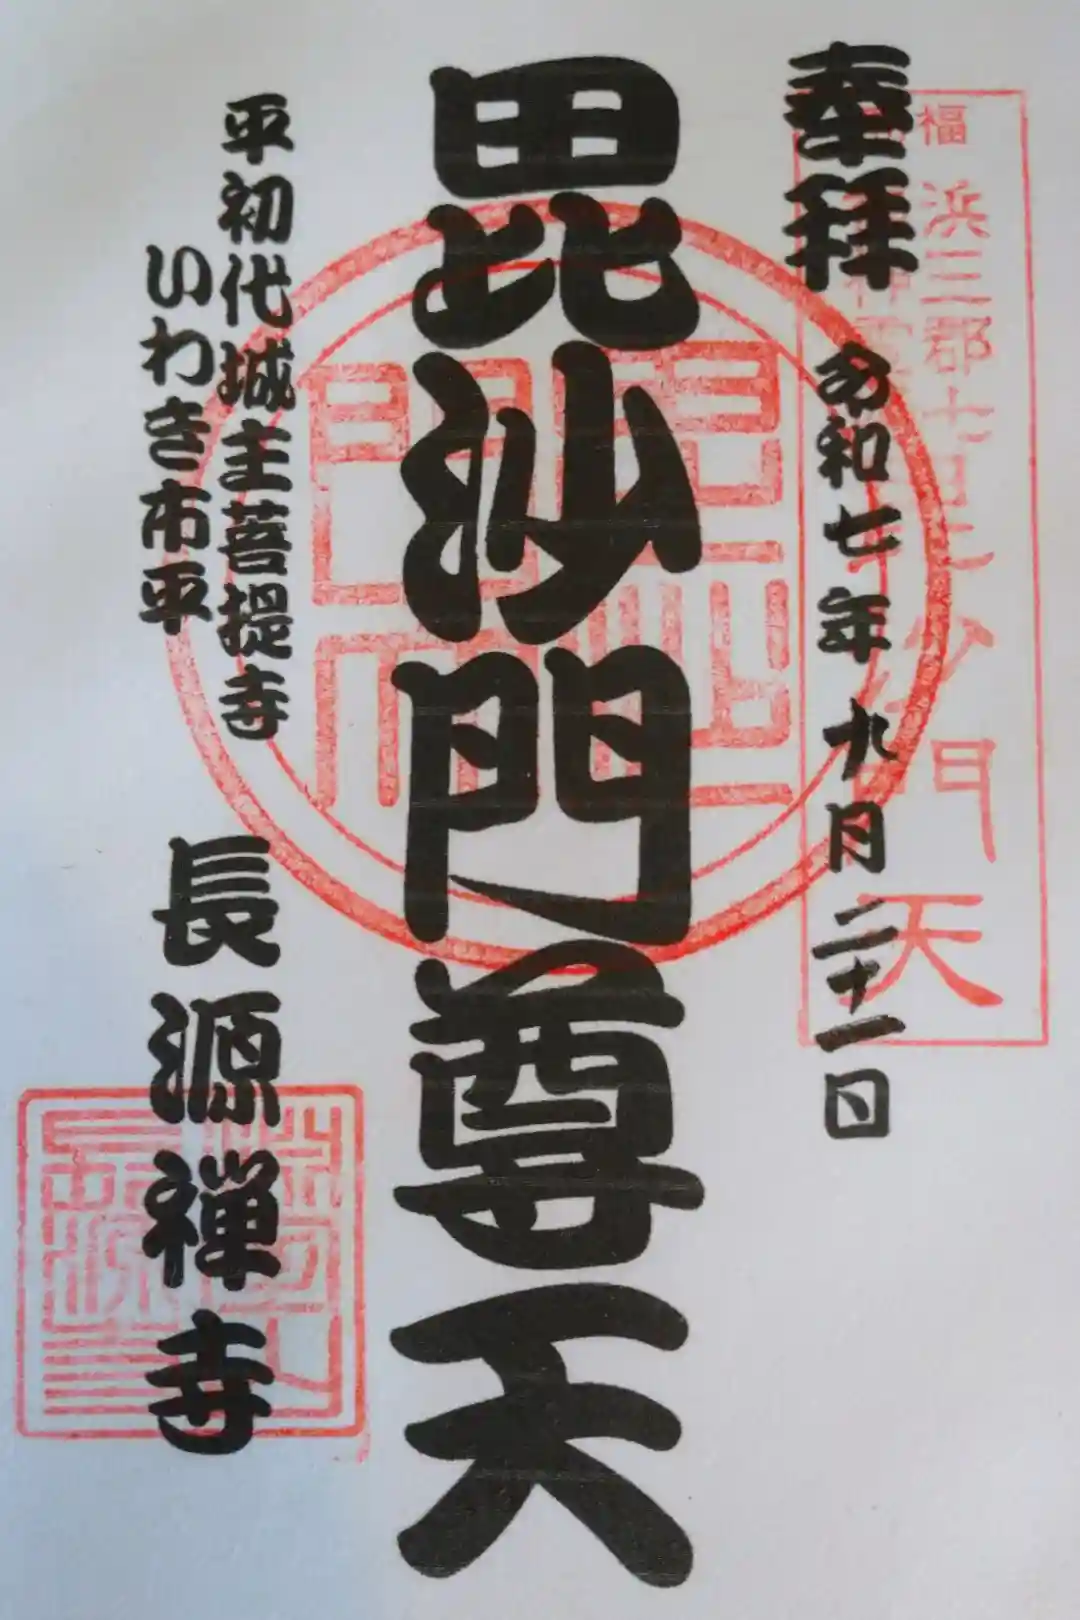 奉拝
令和七年九月二十一日
毘沙門尊天
平初代城主菩提寺
いわき市平
長源禅寺
福
浜三郡七
門
天